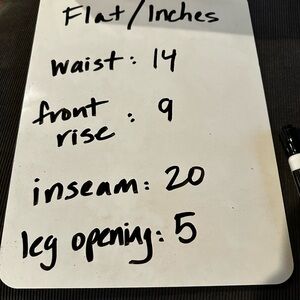 Flat/Inches
waist: 14
front
rise : 9
inseam: 20
leg opening: 5